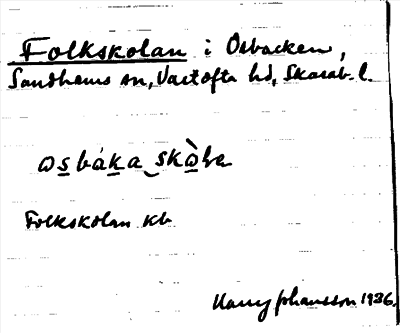 Folkskolan i Osbacken,
Sandhems sn, Vartofta hd, Skarab. l.
osbáka skòla
Folkskolan kb
Harry Johansson 1936.